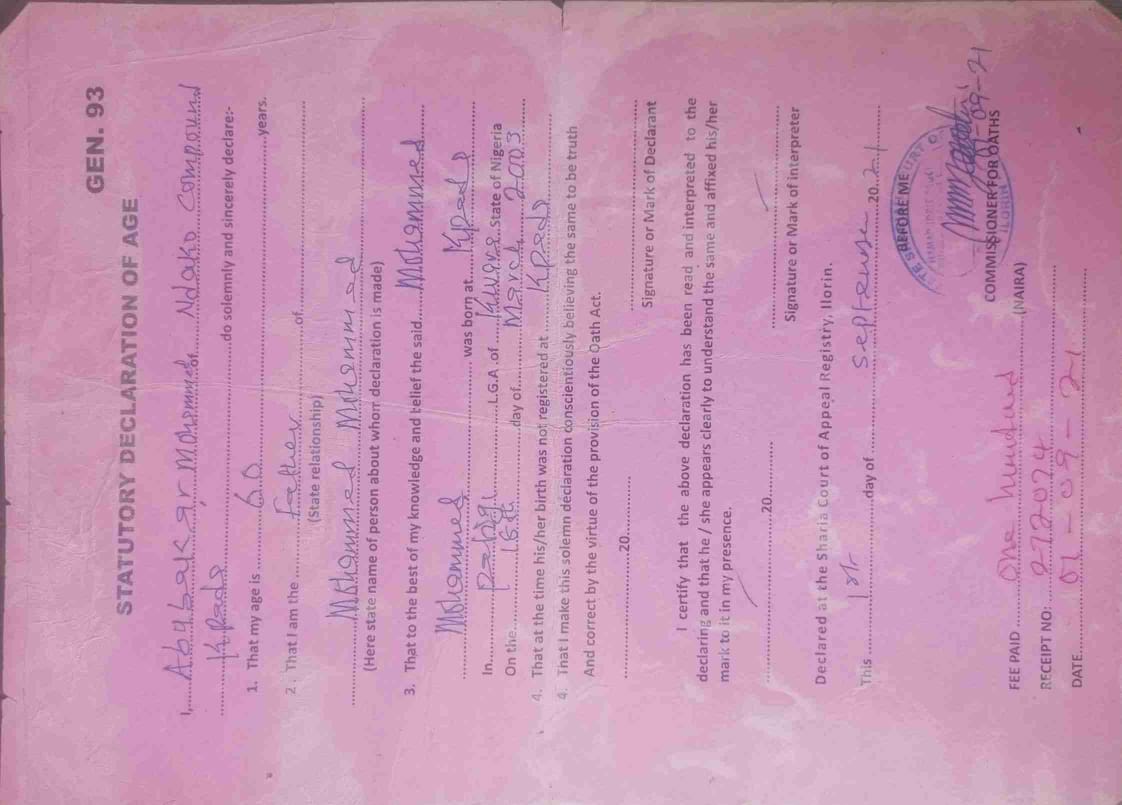 GEN. 93
STATUTORY DECLARATION OF AGE
I, Abubakar Mohammed of Ndako Compound
Kpada do solemnly and sincerely declare:-
1. That my age is 60 years.
2. That I am the father of
(State relationship)
Mohammed Mohammed
(Here state name of person about whom declaration is made)
3. That to the best of my knowledge and belief the said Mohammed
Mohammed was born at Kpada
In Patigi L.G.A of Kwara State of Nigeria
On the 1st day of March 2003
4. That at the time his/her birth was not registered at Kpada
4. That I make this solemn declaration conscientiously believing the same to be truth
And correct by the virtue of the provision of the Oath Act.
20
Signature or Mark of Declarant
I certify that the above declaration has been read and interpreted to the
declaring and that he / she appears clearly to understand the same and affixed his/her
mark to it in my presence.
20
Signature or Mark of interpreter
Declared at the Sharia Court of Appeal Registry, Ilorin.
This 1st day of September 2021
BEFORE ME
ILORIN
09-21
COMMISSIONER FOR OATHS
FEE PAID One hundred (NAIRA)
RECEIPT NO: 2722024
DATE 01-09-21